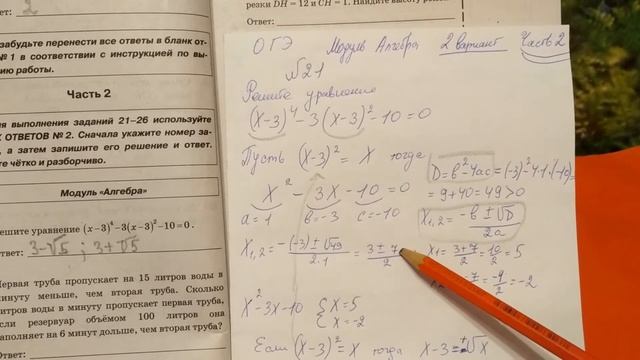 Ответ: 2
забудьте перенести все ответы в бланк от-
№ 1 в соответствии с инструкцией по вы-
нию работы.
Часть 2
я выполнения заданий 21–26 используйте
К ОТВЕТОВ № 2. Сначала укажите номер за-
, а затем запишите его решение и ответ.
те чётко и разборчиво.
Модуль «Алгебра»
ешите уравнение (x−3)⁴−3(x−3)²−10=0.
ответ: 3-√5 ; 3+√5
Первая труба пропускает на 15 литров воды в
минуту меньше, чем вторая труба. Сколько
литров воды в минуту пропускает первая труба,
если резервуар объёмом 100 литров она
заполняет на 6 минут дольше, чем вторая труба?
Ответ:
резки DH = 12 и CH = 1. Найдите высоту
Ответ:
ОГЭ Модуль Алгебра 2 вариант Часть 2
№21
Решите уравнение
(x-3)⁴-3(x-3)²-10=0
Пусть (x-3)²=X тогда
X²-3X-10=0
a=1 b=-3 c=-10
D=b²-4ac=(-3)²-4·1·(-10)=
=9+40=49>0
X₁,₂=-b±√D/2a
X₁,₂=-(-3)±√49/2·1=3±7/2 X₁=3+7/2=10/2=5
-7/2=-4/2=-2
X²-3X-10 {X=5 {X=-2
Если (X-3)²=X тогда X-3=±√X